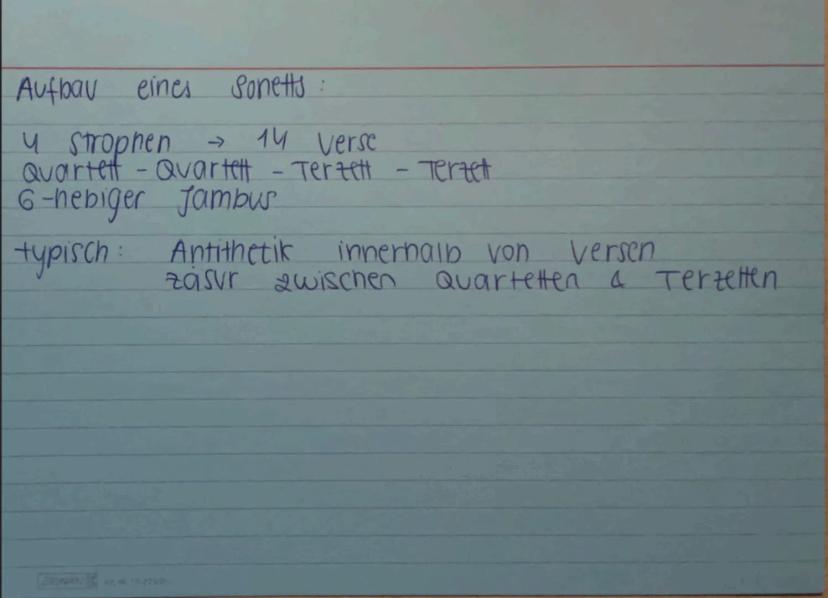 Aufbau eines Sonetts:
4 Strophen → 14 Verse
Quartett - Quartett - Terzett - Terzett
6-hebiger Jambus
typisch: Antithetik innerhalb von Versen
Zäsur zwischen Quartetten & Terzetten